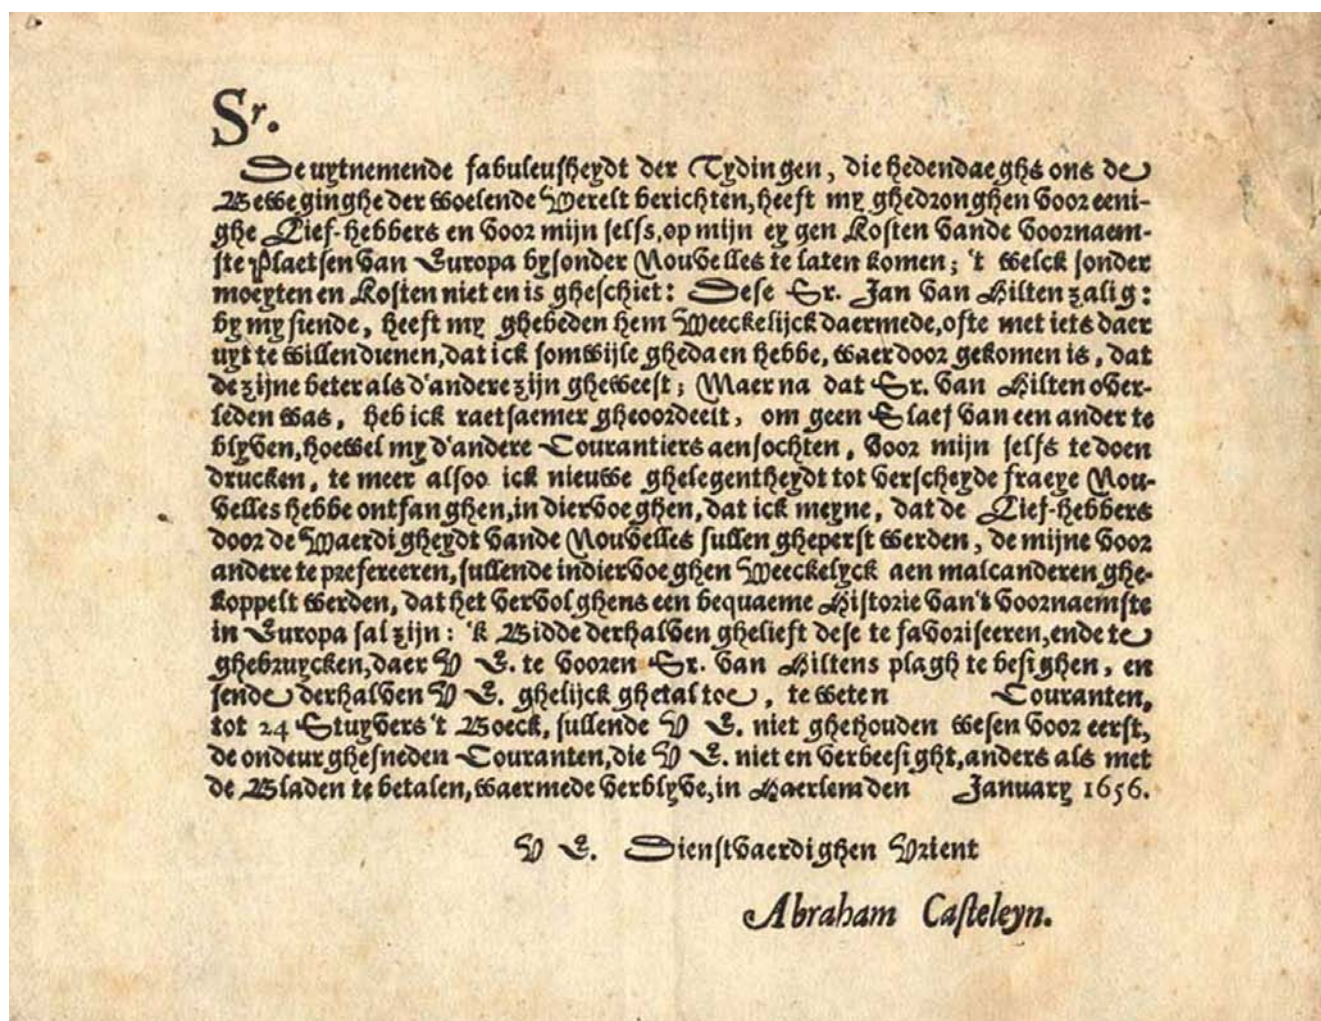 Sr.
De uytnemende fabuleusheydt der Tydingen, die hedendaeghs ons de
Beweginghe der woelende Werelt berichten, heeft my ghedronghen voor eeni-
ghe Lief-hebbers en voor mijn selfs, op mijn eygen Kosten vande voornaem-
ste Plaetsen van Europa bysonder Nouvelles te laten komen; 't welck sonder
moeyten en Kosten niet en is gheschiet: Dese Sr. Jan van Hilten zalig:
by my siende, heeft my ghebeden hem Weeckelijck daermede, ofte met iets daer
uyt te willen dienen, dat ick somwijle ghedaen hebbe, waer door gekomen is, dat
de zijne beter als d'andere zijn gheweest; Maer na dat Sr. van Hilten over-
leden was, heb ick raetsaemer gheoordeelt, om geen Slaef van een ander te
blyven, hoewel my d'andere Courantiers aensochten, voor mijn selfs te doen
drucken, te meer alsoo ick nieuwe ghelegentheydt tot verscheyde fraeye Nou-
velles hebbe ontfanghen, in diervoeghen, dat ick meyne, dat de Lief-hebbers
door de Waerdigheydt vande Nouvelles sullen gheperst werden, de mijne voor
andere te prefereeren, sullende in diervoeghen Weeckelyck aen malcanderen ghe-
koppelt werden, dat het vervolghens een bequaeme Historie van't voornaemste
in Europa sal zijn: 'k Bidde derhalven ghelieft dese te favoriseeren, ende te
ghebruycken, daer V E. te vooren Sr. van Hiltens plagh te besighen, en
sende derhalven V E. ghelijck ghetal toe, te weten Couranten,
tot 24 Stuyvers 't Boeck, sullende V E. niet ghehouden wesen voor eerst,
de ondeurghesneden Couranten, die V E. niet en verbeesight, anders als met
de Bladen te betalen, waermede verblyve, in Haerlem den January 1656.
V E. Dienstvaerdighen Vrient
Abraham Casteleyn.